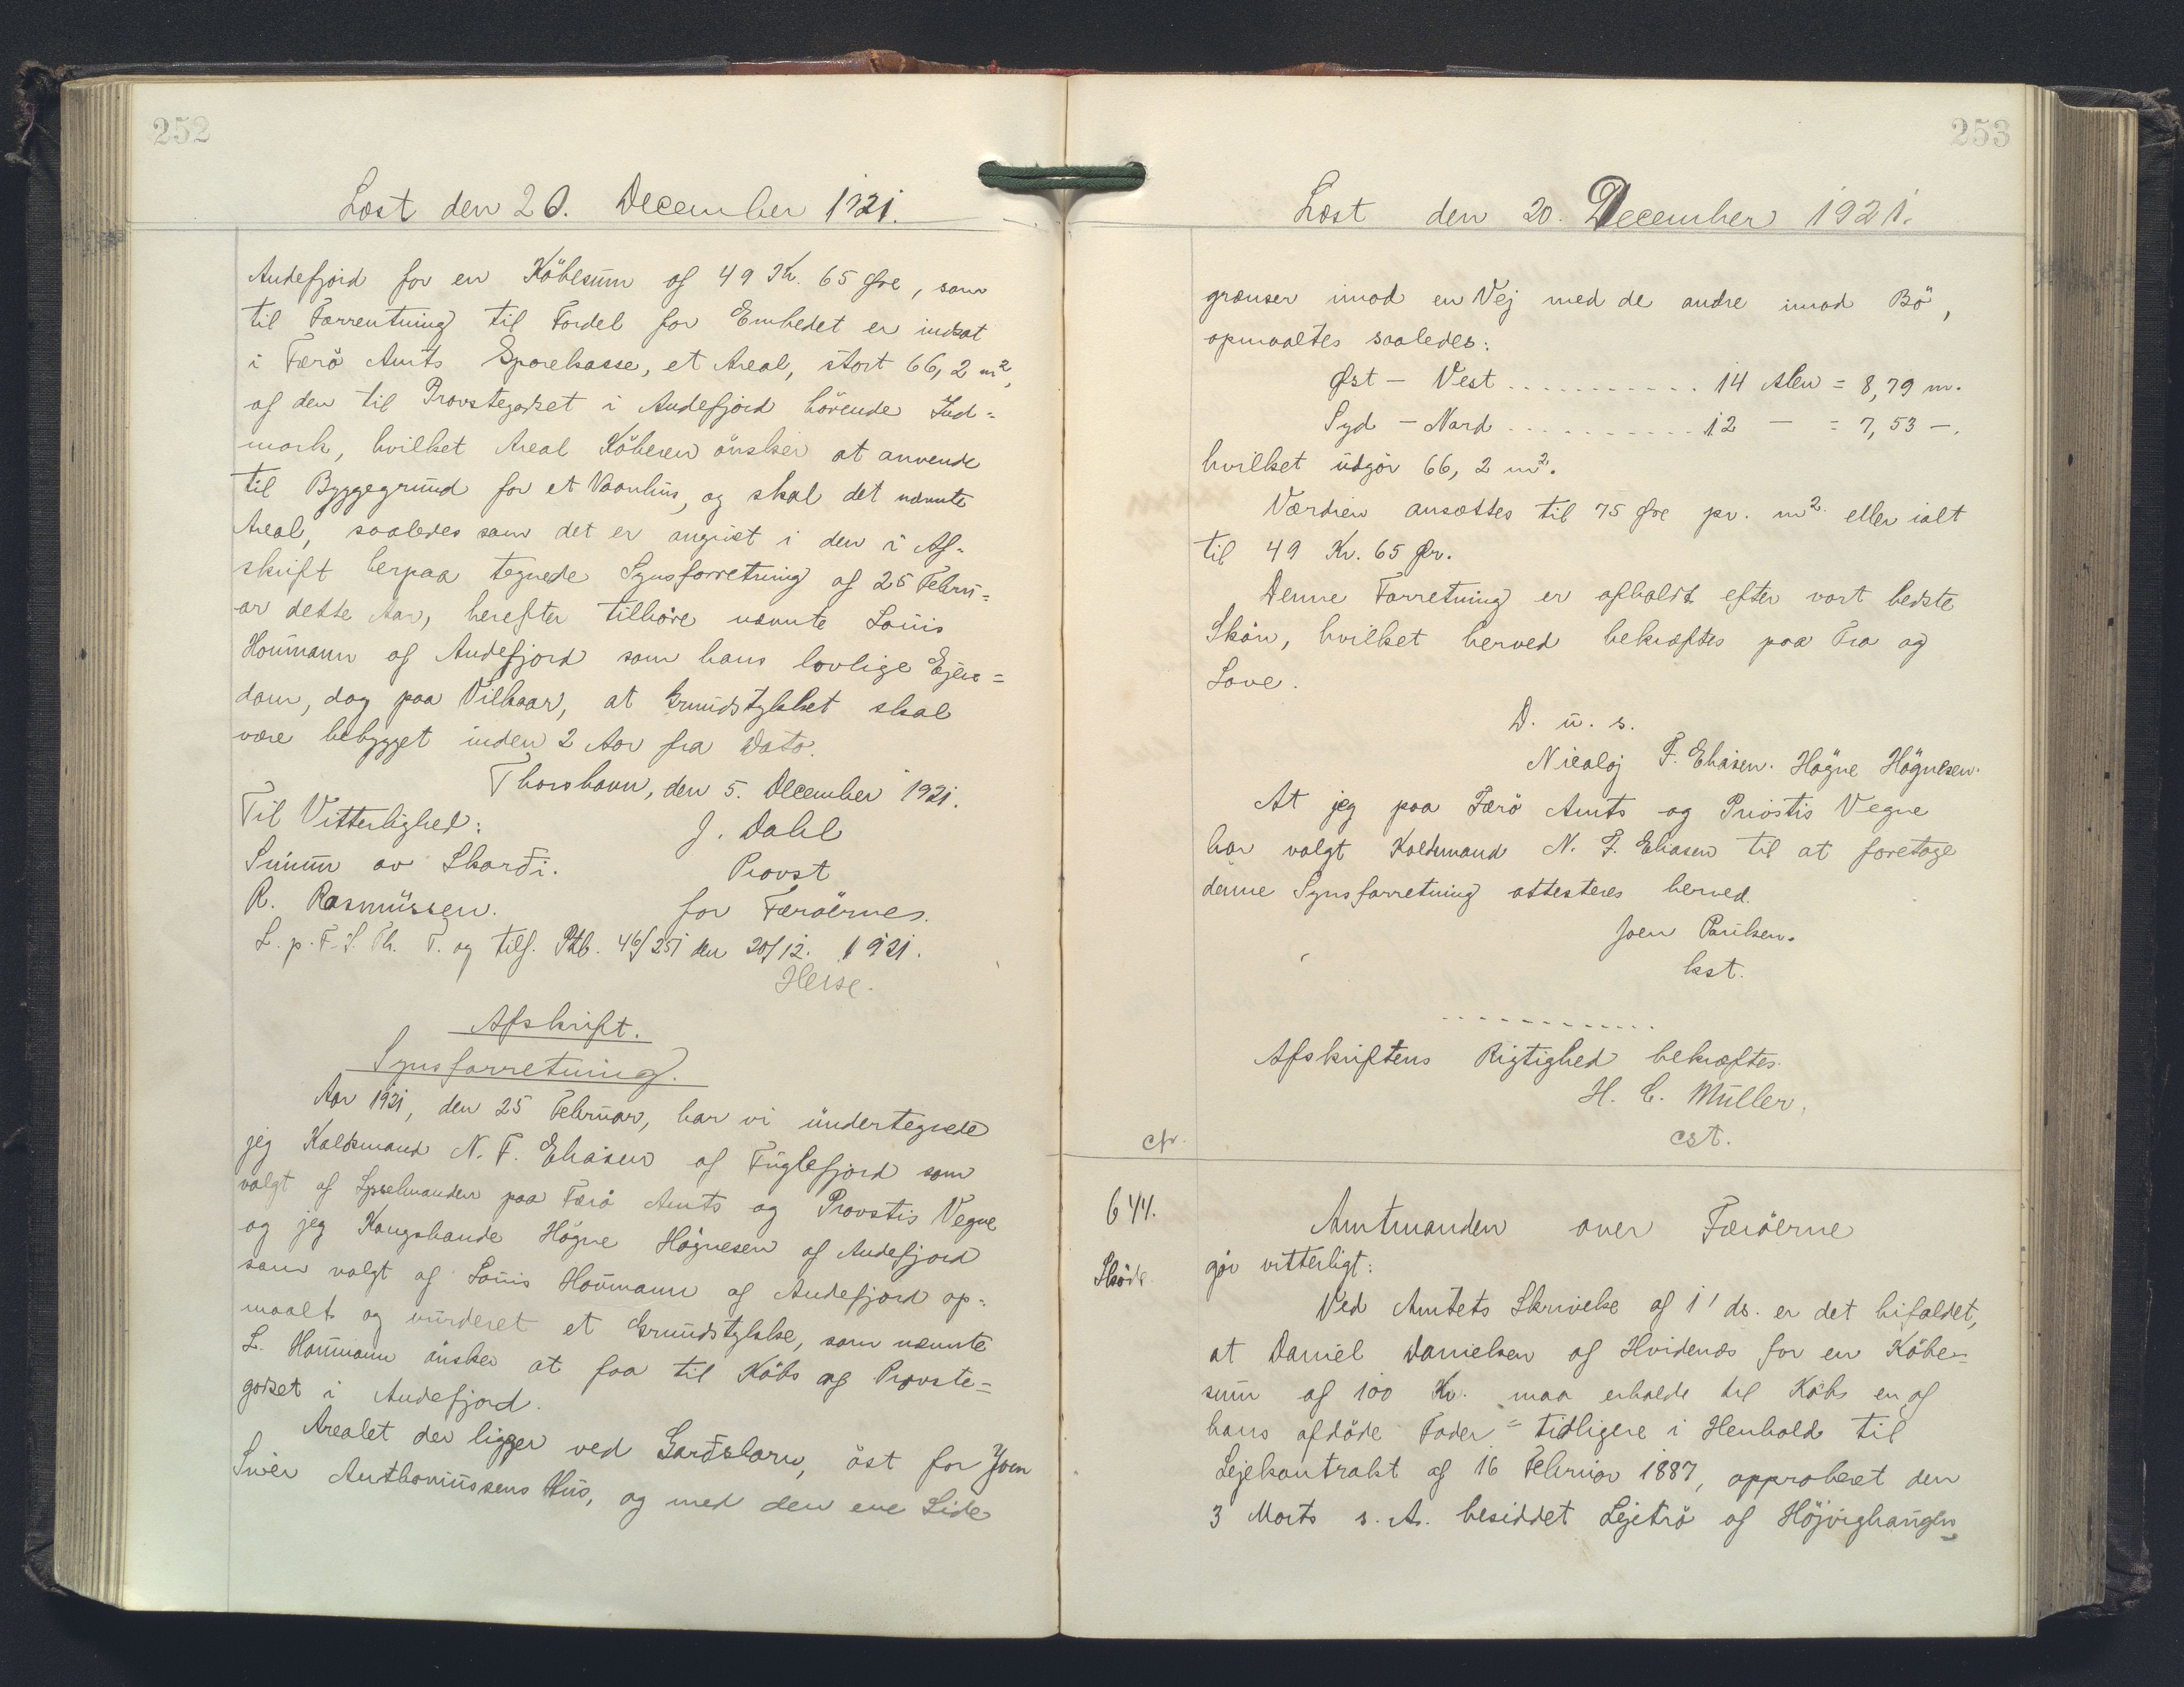 252
Læst den 20. December 1921.
Andefjord for en Köbesum af 49 Kr. 65 Øre, som
til Forrentning til Fordel for Embedet er indsat
i Færö Amts Sparekasse, et Areal, stort 66,2 m²,
af den til Provstegodset i Andefjord hörende Ind=
mark, hvilket Areal Köberen önsker at anvende
til Byggegrund for et Vaanhus, og skal det nævnte
Areal, saaledes som det er angivet i den i Af=
skrift herpaa tegnede Synsforretning af 25 Febru=
ar dette Aar, herefter tilhöre nævnte Louis
Houmann af Andefjord som hans lovlige Ejen=
dom, dog paa Vilkaar, at Grundstykket skal
være bebygget inden 2 Aar fra Dato.
Thorshavn, den 5. December 1921.
Til Vitterlighed:
J. Dahl
Símun av Skarði.
Provst
R. Rasmüssen.
for Færöerne.
L. p. F. S. Th. T. og tilf. Ptb. 46/251 den 20/12. 1921.
Heise.
Afskrift.
Synsforretning.
Aar 1921, den 25 Februar, har vi undertegnede
jeg Kaldsmand N. F. Eliasen af Fuglefjord som
valgt af Sysselmanden paa Færö Amts og Provstis Vegne
og jeg Kongsbonde Högne Högnesen af Andefjord
som valgt af Louis Houmann af Andefjord op=
maalt og vurderet et Grundstykke, som nævnte
L. Houmann önsker at faa til Köbs af Provste=
godset i Andefjord.
Arealet der ligger ved Garðsharn, öst for Joen
Siver Anthoniussens Hus, og med den ene Side
253
Læst den 20. December 1921.
grænser imod en Vej med de andre imod Bö,
opmaaltes saaledes:
Øst - Vest .......... 14 Alen = 8,79 m.
Syd - Nord .......... 12 - = 7,53 -.
hvilket udgör 66,2 m².
Værdien ansættes til 75 Øre pr. m² eller ialt
til 49 Kr. 65 Ør.
Denne Forretning er afholdt efter vort bedste
Skön, hvilket herved bekræftes paa Tro og
Love.
D. u. s.
Nicaloj F. Eliasen. Högne Högnesen.
At jeg paa Færö Amts og Provstis Vegne
har valgt Kaldsmand N. F. Eliasen til at foretage
denne Synsforretning attesteres herved.
Joen Poulsen.
kst.
.............
Afskriftens Rigtighed bekræftes.
H. C. Müller.
cst.
Cfr.
644.
Amtmanden over Færöerne
Sköde
gör vitterligt:
Ved Amtets Skrivelse af 1' ds. er det bifaldet,
at Daniel Danielsen af Hvidenæs for en Köbe=
sum af 100 Kr. maa erholde til Köbs en af
hans afdöde Fader = tidligere i Henhold til
Lejekontrakt af 16 Februar 1887, approberet den
3 Marts s. A. besiddet Lejetrö af Höjvighaugen=